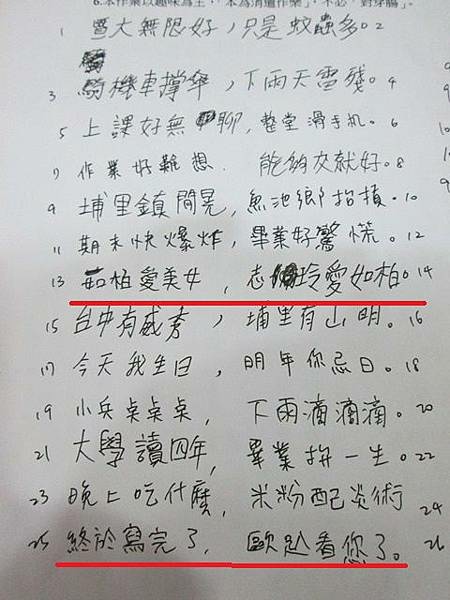 6.本作業以趣味為主，「本為消遣作業」，不必「對穿腸」。
1 暨大無限好，只是蚊蟲多。2
3 騎機車撐傘，下雨天雪殘。4
5 上課好無聊，整堂滑手机。6
7 作業好難想．能夠交就好。8
9 埔里鎮閒晃，魚池鄉拮据．10
11 期末快爆炸，畢業好驚慌。12
13 茹柏愛美女，志玲愛如柏。14
15 台中有威秀，埔里有山明。16
17 今天我生日，明年你忌日。18
19 小兵桌桌桌，下雨滴滴滴。20
21 大學讀四年，畢業拚一生。22
23 晚上吃什麼，米粉配炎術 24
25 終於寫完了，歐趴看您了。26